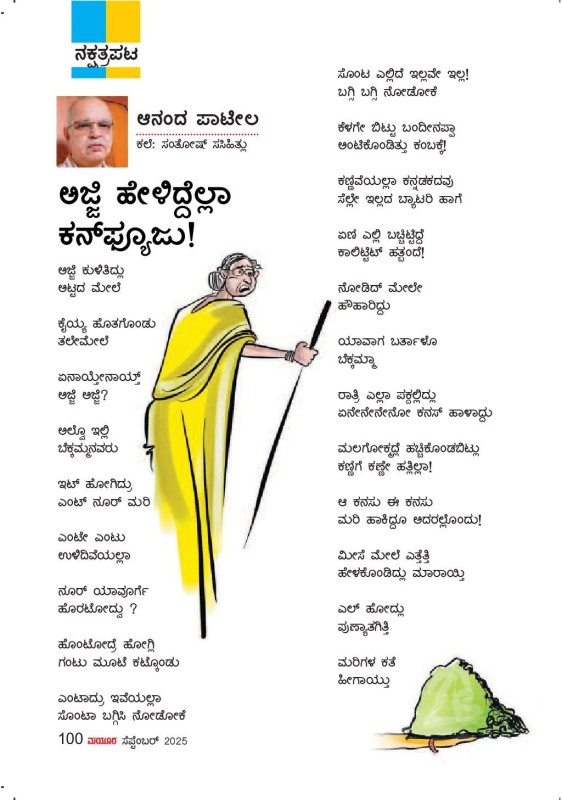 ನಕ್ಷತ್ರಪಟ
ಆನಂದ ಪಾಟೀಲ
ಕಲೆ: ಸಂತೋಷ್ ಸಸಿಹಿತ್ಲು
ಅಜ್ಜಿ ಹೇಳಿದ್ದೆಲ್ಲಾ
ಕನ್‌ಫ್ಯೂಜು!
ಅಜ್ಜಿ ಕುಳಿತಿದ್ಲು
ಅಟ್ಟದ ಮೇಲೆ
ಕೈಯ್ಯ ಹೊತಗೊಂಡು
ತಲೇಮೇಲೆ
ಏನಾಯ್ತೇನಾಯ್ತ್
ಅಜ್ಜಿ ಅಜ್ಜಿ?
ಅಲ್ವೊ ಇಲ್ಲಿ
ಬೆಕ್ಕಮ್ಮನವರು
ಇಟ್ ಹೋಗಿದ್ರು
ಎಂಟ್ ನೂರ್ ಮರಿ
ಎಂಟೇ ಎಂಟು
ಉಳಿದಿವೆಯಲ್ಲಾ
ನೂರ್ ಯಾವೂರ್ಗೆ
ಹೊರಟೋದ್ವು ?
ಹೊಂಟೋದ್ರೆ ಹೋಗ್ಲಿ
ಗಂಟು ಮೂಟೆ ಕಟ್ಕೊಂಡು
ಎಂಟಾದ್ರು ಇವೆಯಲ್ಲಾ
ಸೊಂಟಾ ಬಗ್ಗಿಸಿ ನೋಡೋಕೆ
ಸೊಂಟ ಎಲ್ಲಿದೆ ಇಲ್ಲವೇ ಇಲ್ಲ!
ಬಗ್ಸಿ ಬಗ್ಸಿ ನೋಡೋಕೆ
ಕೆಳಗೇ ಬಿಟ್ಟು ಬಂದೀನಪ್ಪಾ
ಅಂಟಿಕೊಂಡಿತ್ತು ಕಂಬಕ್ಕೆ!
ಕಣ್ಣಿವೆಯಲ್ಲಾ ಕನ್ನಡಕದವು
ಸೆಲ್ಲೇ ಇಲ್ಲದ ಬ್ಯಾಟರಿ ಹಾಗೆ
ಏಣಿ ಎಲ್ಲಿ ಬಚ್ಚಿಟ್ಟಿದ್ದೆ
ಕಾಲಿಟ್ಟಿಟ್ ಹತ್ಬಂದೆ!
ನೋಡಿದ್ ಮೇಲೇ
ಹೌಹಾರಿದ್ದು
ಯಾವಾಗ ಬರ್ತಾಳೊ
ಬೆಕ್ಕಮ್ಮಾ
ರಾತ್ರಿ ಎಲ್ಲಾ ಪಕ್ದಲ್ಲಿದ್ಲು
ಏನೇನೇನೇನೋ ಕನಸ್ ಹಾಳಾದ್ದು
ಮಲಗೋಕ್ಮದ್ಲೆ ಹಚ್ಚಿಕೊಂಡಬಿಟ್ಲು
ಕಣ್ಣಿಗೆ ಕಣ್ಣೇ ಹತ್ತಿಲ್ಲಾ!
ಆ ಕನಸು ಈ ಕನಸು
ಮರಿ ಹಾಕಿದ್ದೂ ಅದರಲ್ಲೊಂದು!
ಮೀಸೆ ಮೇಲೆ ಎತ್ತೆತ್ತಿ
ಹೇಳಕೊಂಡಿದ್ಲು ಮಾರಾಯ್ತಿ
ಎಲ್ ಹೋದ್ಲು
ಪುಣ್ಯಾತಗಿತ್ತಿ
ಮರಿಗಳ ಕತೆ
ಹೀಗಾಯ್ತು
100 ಮಯೂರ ಸೆಪ್ಟೆಂಬರ್ 2025